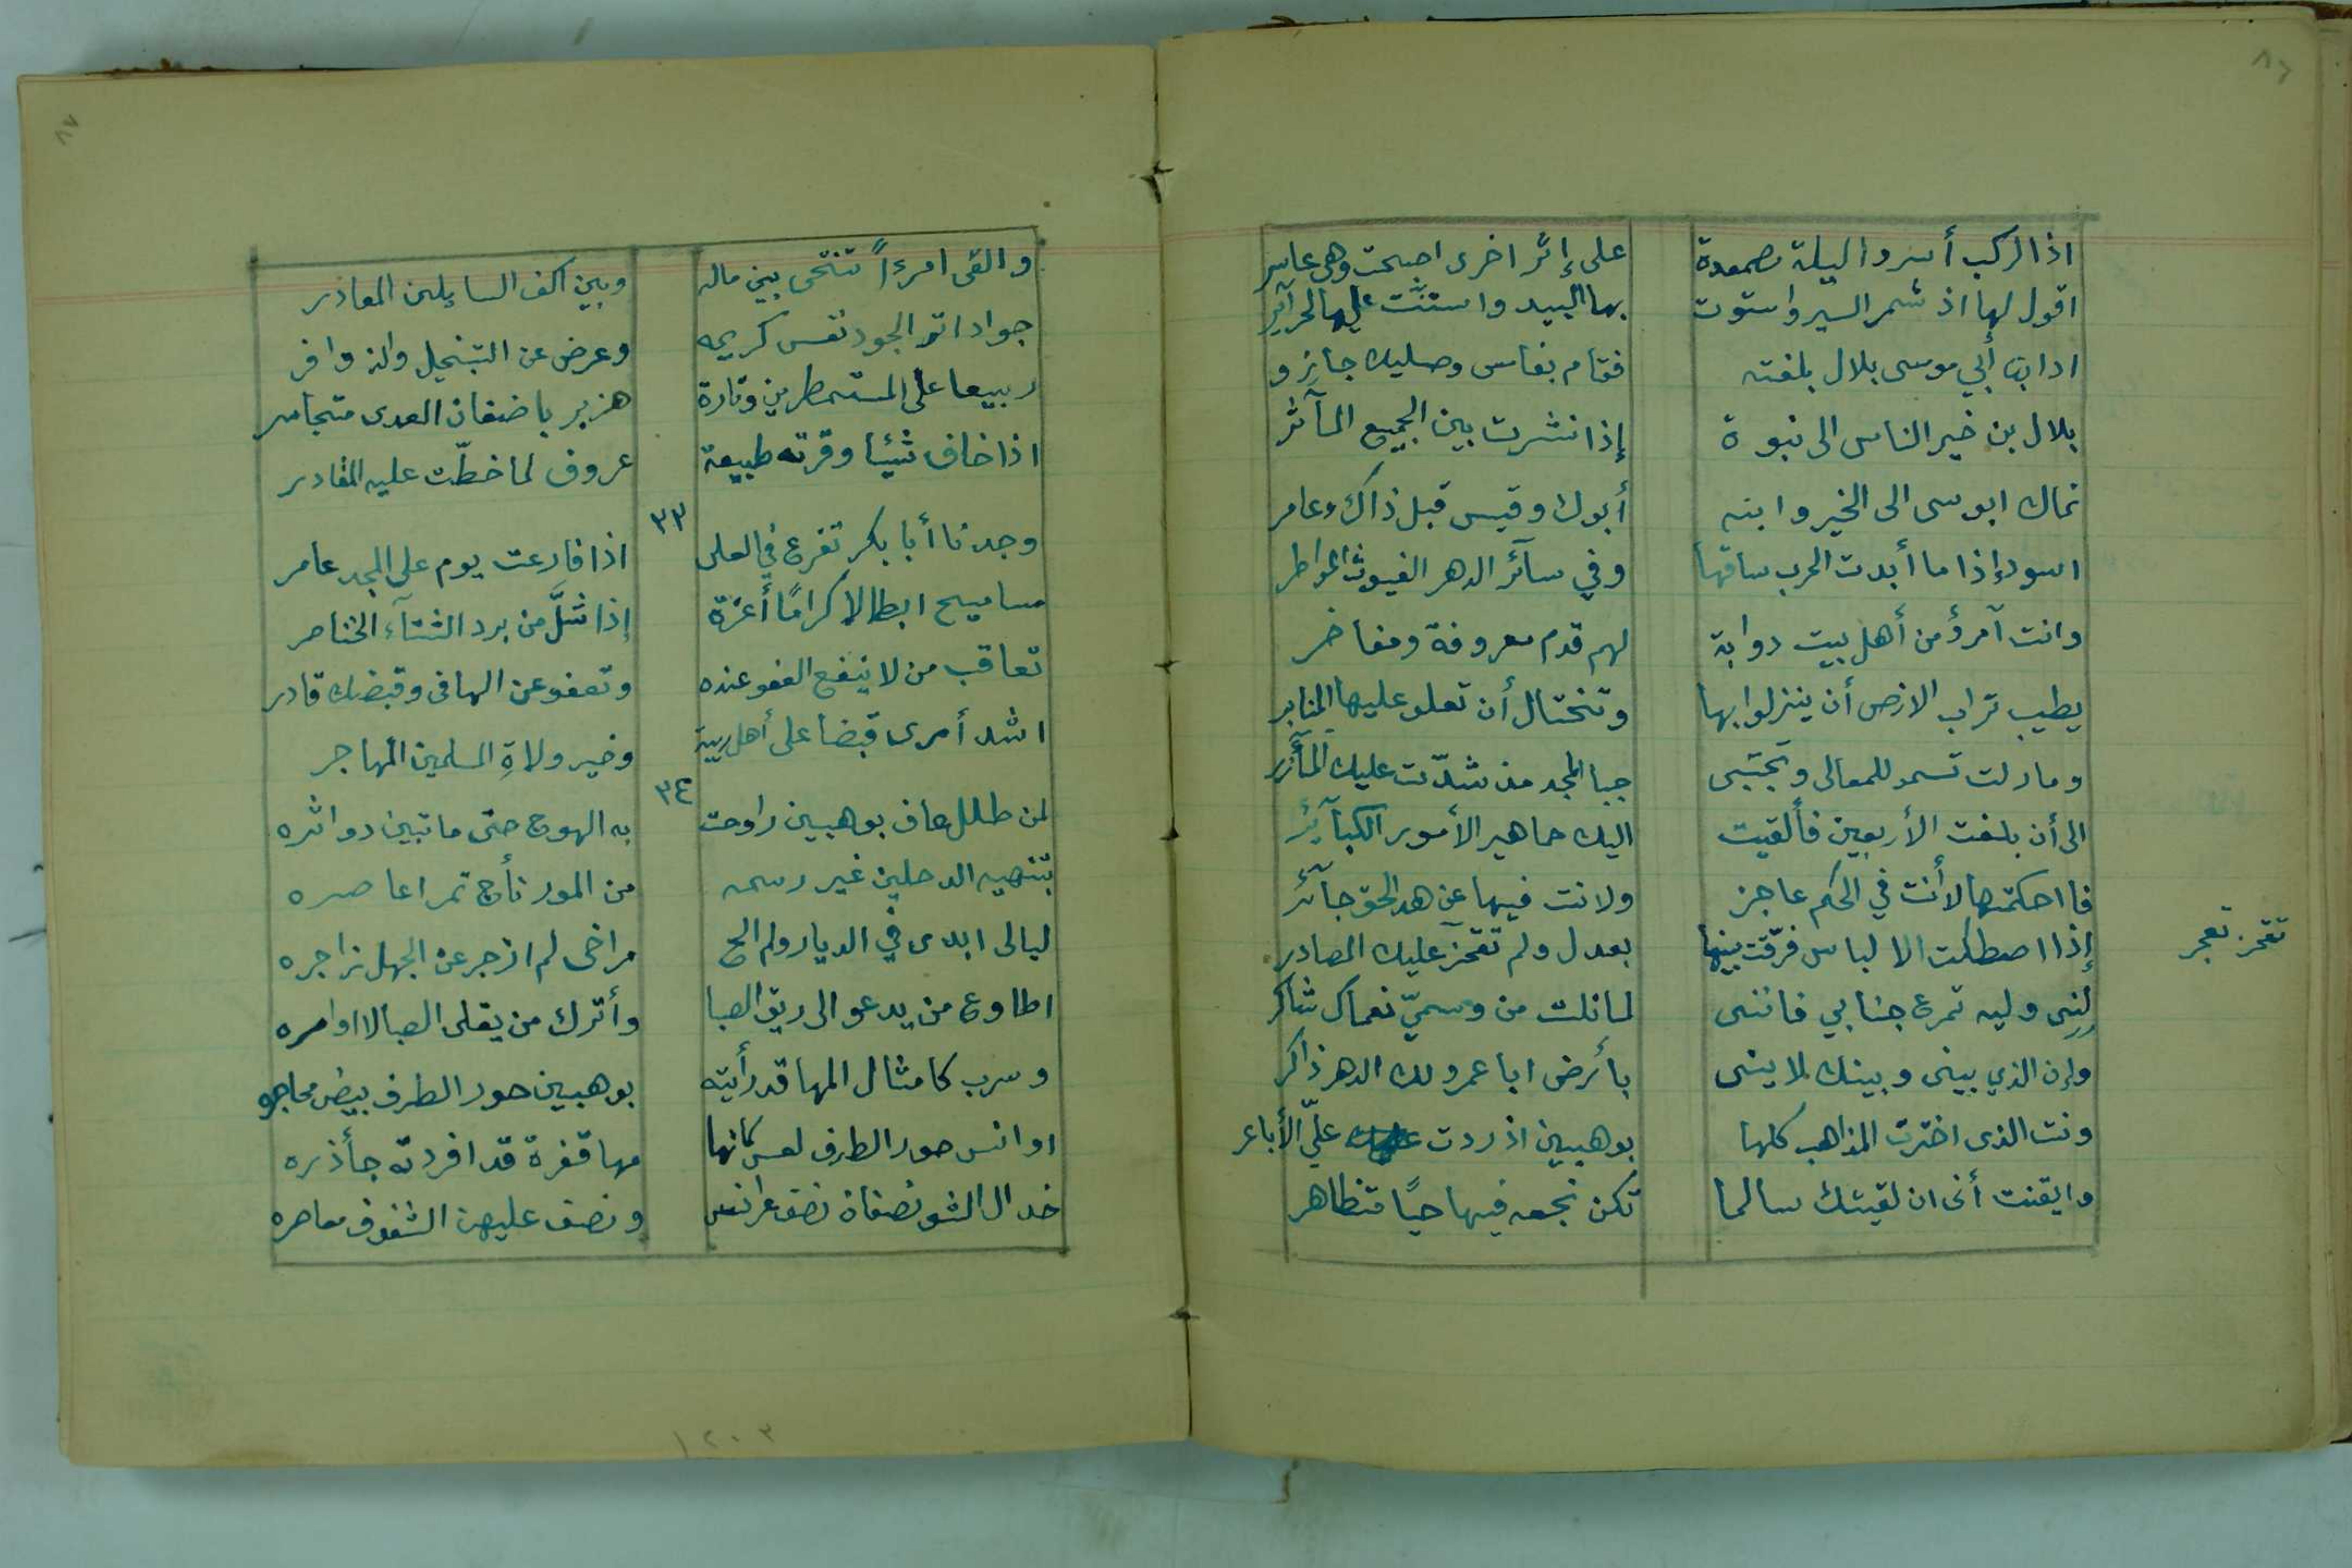 ٨٦
اذا الركب أسروا ليلة مصمعدة
على إثر اخرى اصبحت وهي عاسر
اقول لها اذ شمر السير واستوت
بها البيد واستنَّت عليها الحرآئر
اذا ابن أبي موسى بلال بلغته
فقام بفاس وصليك جازر
بلال بن خير الناس الى نبوة
إذا نشرت بين الجميع المآثر
نماك ابو موسى الى الخير وابنه
أبوك وقيس قبل ذاك وعامر
اسود إذا ما أبدت الحرب ساقها
وفي سآئر الدهر الغيوث المواطر
وانت آمرؤ من أهل بيت دوابة
لهم قدم معروفة ومفاخر
يطيب تراب الارض أن ينزلوا بها
وتختال أن تعلو عليها المنابر
ومازلت تسمو للمعالى وتجتبى
جبا المجد مذ شدّت عليك المآزر
الى أن بلغت الأربعين فألقيت
اليك جماهير الأمور الكبآئر
فاحكمتها لا أنت في الحكم عاجز
ولا انت فيها عن هد الحق جآئر
إذا اصطكت الالباس فرّقت بينها
بعدل ولم تقحز عليك المصادر
تقحز تعجز
لنى وليه تمرع جنابي فاننى
لما نلت من وسميّ نعماك شاكر
وإن الذي بينى وبينك لاينى
بأرض ابا عمرو لك الدهر ذاكر
ونت الذى اخترت المذاهب كلها
بوهبين اذ ردت علىّ الأباعر
وايقنت أنى ان لقيتك سالما
تكن نجعه فيها حيًا متظاهر
٨٧
والقى امرءاً تنتحى بين ماله
وبين اكف السايلين المعاذر
جوادا تر الجود نفس كريمه
وعرض عن التبخيل والذ وافر
ربيعا على المستمطرين وتارة
هزبر باضغان العدى متجاسر
اذا خاف شيئا وقرته طبيعة
عروف لما خطّت عليه المقادر
٣٣
وجدنا أبا بكر تفرع في العلى
اذا قارعت يوم على المجد عامر
مساميح ابطالا كرامًا أعزة
إذا شَلَّ من برد الشتآء الخناصر
تعاقب من لا ينفع العفو عنده
وتعفو عن الهافى وقبضك قادر
اشد أمرى قبضا على أهل ريبة
وخير ولاةِ المسلمين المهاجر
٣٤
لمن طلل عاف بوهبين راوحت
به الهوج حتى ما تبين دواثره
بتنهيه الدحلين غير رسمه
من المور نأج تمر اعاصره
ليالى ابدى في الديار ولم الح
مراخى لم ازجر عن الجهل زاجره
اطاوع من يدعو الى ريق الصبا
وأترك من يقلى الصبا لا اوامره
وسرب كامثال المها قد رأيته
بوهبين حور الطرف بيض محاجره
اوانس حور الطرف لعس كانها
مها قفرة قد افردته جأذره
خدال الشو نصفان نصف عرانس
ونصف عليهن الشفوف معاصره
١٢٠٣